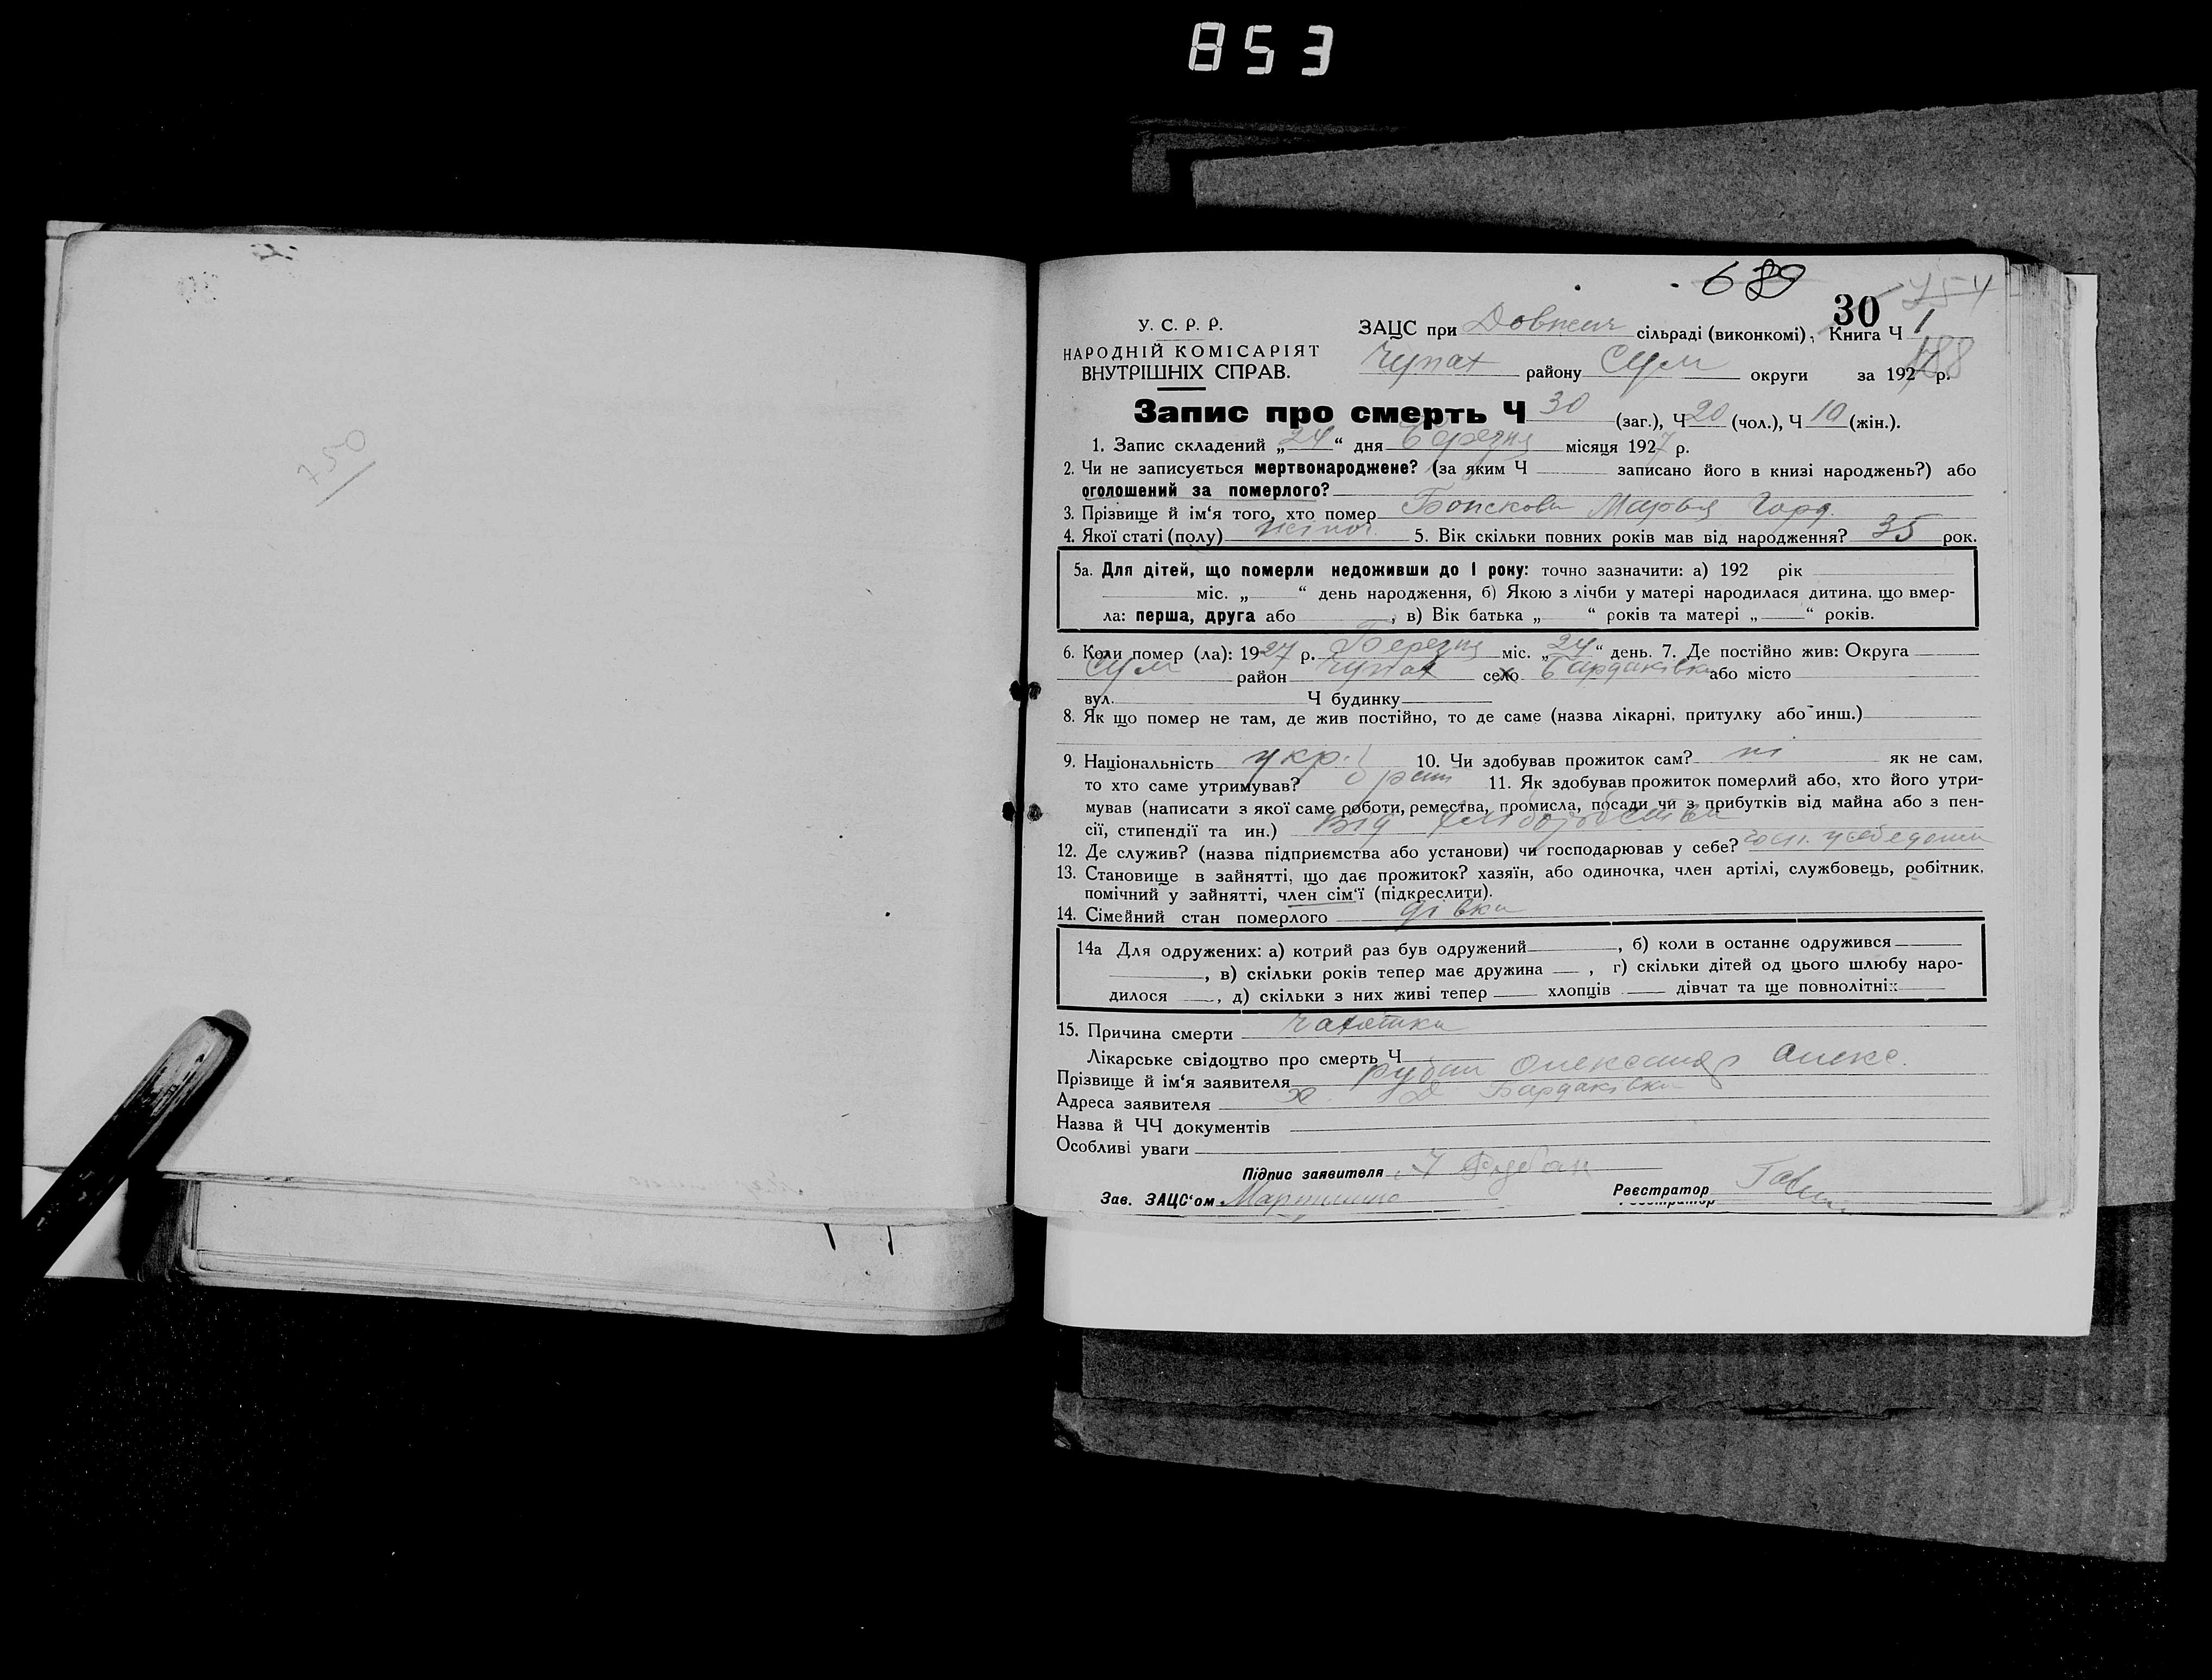 853
750
689
754
30
188
У. С. Р. Р.
НАРОДНІЙ КОМІСАРІЯТ
ВНУТРІШНІХ СПРАВ.
ЗАЦС при Довжич сільраді (виконкомі), Книга Ч 1
Чупах району Сум округи за 1927 р.
Запис про смерть Ч 30 (заг.), Ч 20 (чол.), Ч 10 (жін.).
1. Запис складений „24“ дня березня місяця 1927 р.
2. Чи не записується мертвонароджене? (за яким Ч записано його в книзі народжень?) або
оголошений за померлого?
3. Прізвище й ім‘я того, хто помер Марья Горд.
4. Якої статі (полу) жіноч. 5. Вік скільки повних років мав від народження? 35 рок.
5а. Для дітей, що померли недоживши до 1 року: точно зазначити: а) 192 рік
міс. „ “ день народження, б) Якою з лічби у матері народилася дитина, що вмер-
ла: перша, друга або , в) Вік батька „ “ років та матері „ “ років.
6. Коли помер (ла): 1927 р. Березня міс. „24“ день. 7. Де постійно жив: Округа
Сум район Чупах село Бардаківка або місто
вул. Ч будинку
8. Як що помер не там, де жив постійно, то де саме (назва лікарні, притулку або инш.)
9. Національність укр. 10. Чи здобував прожиток сам? ні як не сам,
то хто саме утримував? брат 11. Як здобував прожиток померлий або, хто його утри-
мував (написати з якої саме роботи, ремества, промисла, посади чи з прибутків від майна або з пен-
сії, стипендії та ин.) від хліборобства
12. Де служив? (назва підприємства або установи) чи господарював у себе? госп. у себе дома
13. Становище в зайнятті, що дає прожиток? хазяїн, або одиночка, член артілі, службовець, робітник,
помічний у зайнятті, член сім‘ї (підкреслити).
14. Сімейний стан померлого дівка
14а Для одружених: а) котрий раз був одружений , б) коли в останнє одружився
, в) скільки років тепер має дружина , г) скільки дітей од цього шлюбу наро-
дилося , д) скільки з них живі тепер хлопців дівчат та ще повнолітніх
15. Причина смерти чахотка
Лікарське свідоцтво про смерть Ч
Прізвище й ім‘я заявителя Рубан Олександр Олекс.
Адреса заявителя х. Д Бардаківка
Назва й ЧЧ документів
Особливі уваги
Підпис заявителя Рубан
Зав. ЗАЦС‘ом Реєстратор